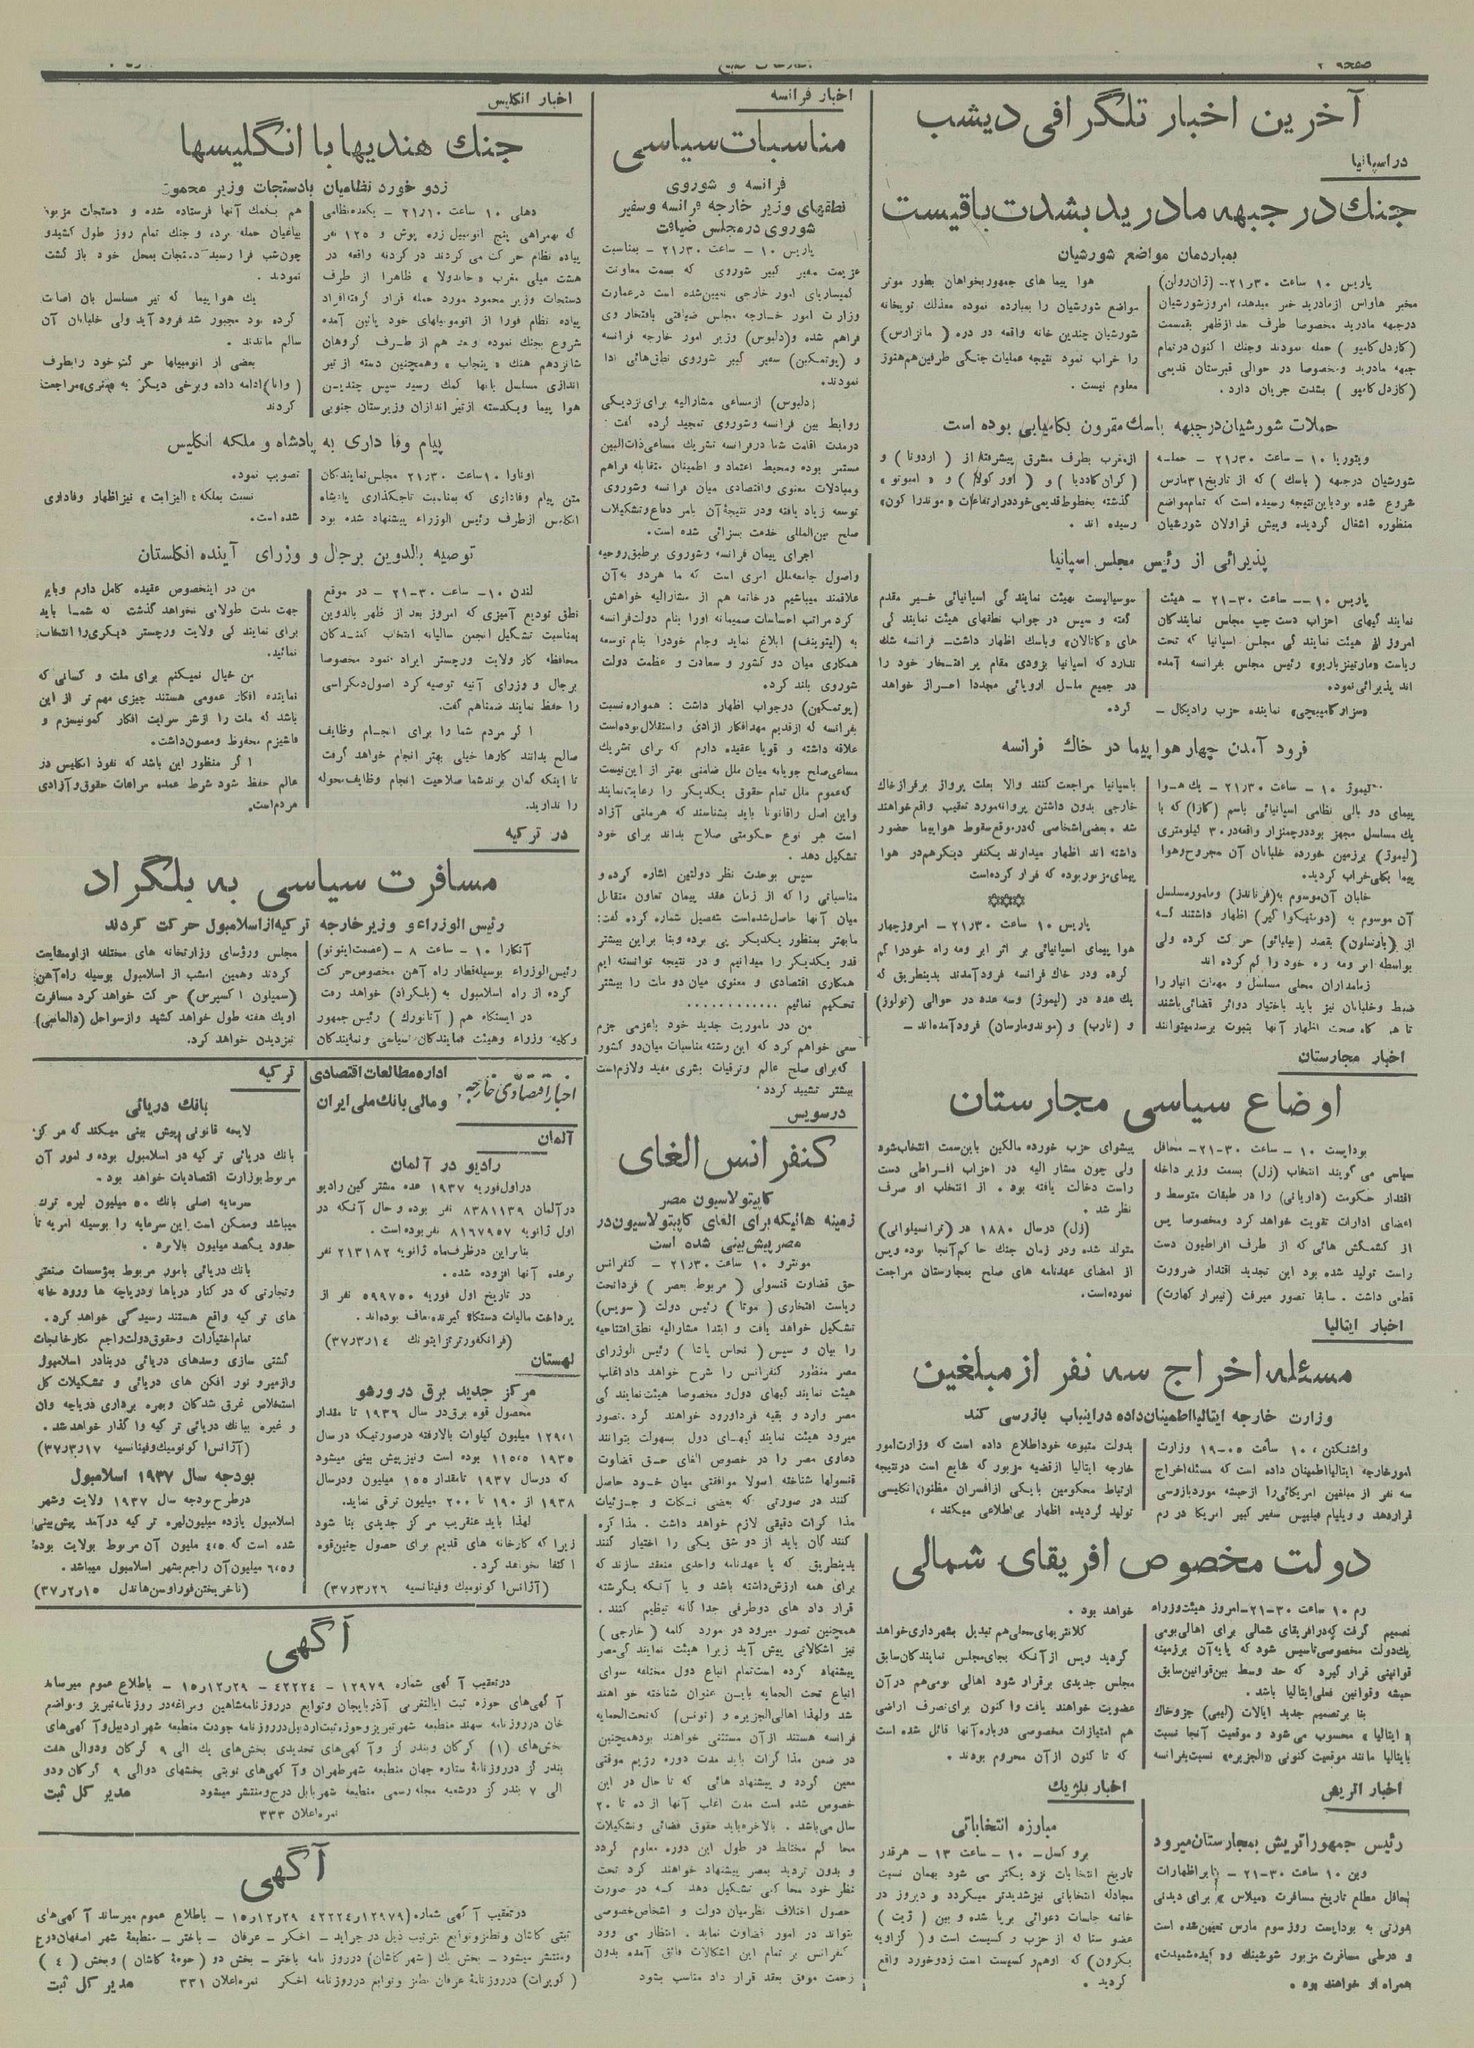 صفحه ۲
آخرین اخبار تلگرافی دیشب
در اسپانیا
جنك در جبهه مادرید بشدت باقیست
بمباردمان مواضع شورشیان
پاریس ۱۰ ساعت ۲۱ر۳۰ – (زان رولن)
مخبر هاواس از مادرید خبر میدهد، امروز شورشیان
در جبهه مادرید مخصوصا طرف بعد از ظهر بقسمت
(کازدل کامپو) حمله نمودند و جنك اکنون در تمام
جبهه مادرید و مخصوصا در حوالی قبرستان قدیمی
(کازدل کامپو) بشدت جریان دارد.
هوا پیما های جمهوریخواهان بطور موثر
مواضع شورشیان را بمبارده نموده معذلك توپخانه
شورشیان چندین خانه واقعه در دره (مانزارس)
را خراب نمود نتیجه عملیات جنگی طرفین هم هنوز
معلوم نیست.
حملات شورشیان در جبهه باسك مقرون بکامیابی بوده است
ویتوریا ۱۰ – ساعت ۲۱ر۳۰ – حمله
شورشیان در جبهه (باسك) که از تاریخ ۳۱ مارس
شروع شده بود باین نتیجه رسیده است که تمام مواضع
منظوره اشغال گردیده و پیش قراولان شورشیان
از مغرب بطرف مشرق پیشرفته از (اردونا) و
گذشته بخطوط قدیمی خود در ارتفاعات «موندراکون»
رسیده اند.
پذیرائی از رئیس مجلس اسپانیا
پاریس ۱۰ – ساعت ۳۰–۲۱ – هیئت
نمایندگیهای احزاب دست چپ مجلس نمایندگان
امروز از هیئت نمایندگی مجلس اسپانیا که تحت
ریاست «مارتینز باریو» رئیس مجلس بفرانسه آمده
اند پذیرائی نمود.
«سزار کامپینچی» نماینده حزب رادیکال –
سوسیالیست بهیئت نمایندگی اسپانیائی خیر مقدم
گفته و سپس در جواب نطقهای هیئت نمایندگی
های «کاتالان» و باسك اظهار داشت – فرانسه شك
ندارد که اسپانیا بزودی مقام پر افتخار خود را
در جمیع ملل اروپائی مجددا احراز خواهد
کرد.
فرود آمدن چهار هواپیما در خاك فرانسه
لیموژ ۱۰ – ساعت ۳۰ر۲۱ – یك هوا
پیمای دو بالی نظامی اسپانیائی باسم (کازا) که با
یك مسلسل مجهز بود در چمنزار واقعه در ۳۰ کیلومتری
(لیموژ) بزمین خورده خلبانان آن مجروح و هوا
پیما بکلی خراب گردید.
خلبان آن موسوم به (فرناندز) و مامور مسلسل
آن موسوم به (دوستیکو اکیر) اظهار داشتند که
از (بارسلون) بقصد (بیلبائو) حرکت کرده ولی
بواسطه ابر و مه راه خود را گم کرده اند
زمامداران محلی مسلسل و مهمات انبار را
ضبط و خلبانان نیز باید باختیار دوائر قضائی باشند
تا هر گاه صحت اظهار آنها بثبوت برسد میتوانند
باسپانیا مراجعت کنند والا بعلت پرواز بر فراز خاك
خارجی بدون داشتن پروانه مورد تعقیب واقع خواهند
شد. بعضی اشخاصی که در موقع سقوط هواپیما حضور
داشته اند اظهار میدارند یکنفر دیگر هم در هوا
پیمای مزبور بوده که فرار کرده است
پاریس ۱۰ ساعت ۲۱ر۳۰ – امروز چهار
هوا پیمای اسپانیائی بر اثر ابر و مه راه خود را گم
کرده و در خاك فرانسه فرود آمدند بدینطریق که
یك عدد در (لیموژ) و سه عدد در حوالی (تولوز)
و (تارب) و (موندومارسان) فرود آمده اند –
اخبار مجارستان
اوضاع سیاسی مجارستان
بوداپست ۱۰ – ساعت ۳۰–۲۱ – محافل
سیاسی می گویند انتخاب (زل) بسمت وزیر داخله
اقتدار حکومت (داریانی) را در طبقات متوسط و
اعضای ادارات تقویت خواهد کرد و مخصوصا پس
از کشمکش هائی که از طرف افراطیون دست
راست تولید شده بود این تجدید اقتدار ضرورت
قطعی داشت. سابقا تصور میرفت (تیبرار کهارت)
پیشوای حزب خورده مالکین باین سمت انتخاب شود
ولی چون مشار الیه در احزاب افراطی دست
راست دخالت یافته بود. از انتخاب او صرف
نظر شد.
(زل) در سال ۱۸۸۰ در (ترانسیلوانی)
متولد شده و در زمان جنك حاکم آنجا بوده و پس
از امضای عهدنامه های صلح بمجارستان مراجعت
نموده است.
اخبار ایتالیا
مسئله اخراج سه نفر از مبلغین
وزارت خارجه ایتالیا اطمینان داده در اینباب بازرسی کند
واشنکتن، ۱۰ ساعت ۰۵–۱۹ وزارت
امور خارجه ایتالیا اطمینان داده است که مسئله اخراج
سه نفر از مبلغین امریکائی را از حبشه مورد بازرسی
قرار دهد و ویلیام فیلیپس سفیر کبیر امریکا در رم
بدولت متبوعه خود اطلاع داده است که وزارت امور
خارجه ایتالیا از قضیه مزبور که شایع است در نتیجه
ارتباط محکومین با یکی از افسران مظنون انگلیسی
تولید گردیده اظهار بی اطلاعی میکند،
دولت مخصوص افریقای شمالی
رم ۱۰ ساعت ۳۰–۲۱ – امروز هیئت وزراء
تصمیم گرفت که در افریقای شمالی برای اهالی بومی
یك دولت مخصوصی تاسیس شود که پایه آن بر زمینه
قوانینی قرار گیرد که حد وسط بین قوانین سابق
حبشه و قوانین فعلی ایتالیا باشد.
بنا بر تصمیم جدید ایالات (لیبی) جزو خاك
«ایتالیا» محسوب می شود و موقعیت آنجا نسبت
بایتالیا مانند موقعیت کنونی «الجزیره» نسبت بفرانسه
خواهد بود.
کلانتریهای محلی هم تبدیل بشهرداری خواهد
گردید و پس از آنکه بجای مجلس نمایندگان سابق
مجلس جدیدی برقرار شود اهالی بومی هم در آن
عضویت خواهند یافت و اکنون برای تصرف اراضی
هم امتیازات مخصوصی درباره آنها قائل شده است
که تا کنون از آن محروم بودند.
اخبار اتریش
رئیس جمهور اتریش بمجارستان میرود
وین ۱۰ ساعت ۳۰–۲۱ – بنابر اظهارات
محافل مطلع تاریخ مسافرت «میلاس» برای دیدنی
هورتی به بوداپست روز سوم مارس تعیین شده است
و در طی مسافرت مزبور شوشینك و «گیدوشمیدت»
همراه او خواهند بود.
اخبار بلژیك
مبارزه انتخاباتی
بروکسل – ۱۰ – ساعت ۱۳ – هر قدر
تاریخ انتخابات نزدیکتر می شود بهمان نسبت
مجادله انتخاباتی نیز شدیدتر میگردد و دیروز در
خاتمه جلسات دعوائی برپا شده و بین (ژیت)
عضو سنا که از حزب رکسیست است و (گزاویه
بکرون) که او هم رکسیست است زد و خورد واقع
گردید.
اخبار فرانسه
مناسبات سیاسی
فرانسه و شوروی
نطقهای وزیر خارجه فرانسه و سفیر
شوروی در مجلس ضیافت
پاریس ۱۰ – ساعت ۲۱ر۳۰ – بمناسبت
عزیمت سفیر کبیر شوروی که بسمت معاونت
کمیساریای امور خارجی تعیین شده است در عمارت
وزارت امور خارجه مجلس ضیافتی بافتخار وی
فراهم شده و (دلبوس) وزیر امور خارجه فرانسه
و (پوتمکین) سفیر کبیر شوروی نطق هائی ادا
نمودند.
(دلبوس) از مساعی مشارالیه برای نزدیکی
روابط بین فرانسه و شوروی تمجید کرده گفت:
در مدت اقامت شما در فرانسه تشریك مساعی ذات البین
مستمر بوده و محیط اعتماد و اطمینان متقابله فراهم
و مبادلات معنوی و اقتصادی میان فرانسه و شوروی
توسعه زیاد یافته و در نتیجه آن بامر دفاع و تشکیلات
صلح بین المللی خدمت بسزائی شده است.
اجرای پیمان فرانسه و شوروی بر طبق روحیه
و اصول جامعه ملل امری است که ما هر دو به آن
علاقمند میباشیم در خاتمه هم از مشارالیه خواهش
کرد مراتب احساسات صمیمانه او را بنام دولت فرانسه
به (لیتوینف) ابلاغ نماید و جام خود را بنام توسعه
همکاری میان دو کشور و سعادت و عظمت دولت
شوروی بلند کرد.
(پوتمکین) در جواب اظهار داشت: همواره نسبت
بفرانسه که از قدیم مهد افکار آزادی و استقلال بوده است
علاقه داشته و قویا عقیده دارم که برای تشریك
مساعی صلح جویانه میان ملل ضامنی بهتر از این نیست
که عموم ملل تمام حقوق یکدیگر را رعایت نمایند
و این اصل را قانونا باید بشناسند که هر ملتی آزاد
است هر نوع حکومتی صلاح بداند برای خود
تشکیل دهد.
سپس بوحدت نظر دولتین اشاره کرده و
مناسباتی را که از زمان عقد پیمان تعاون متقابل
میان آنها حاصل شده است بتفصیل شماره کرده گفت:
ما بهتر بمنظور یکدیگر پی برده و بنا بر این بیشتر
قدر یکدیگر را میدانیم و در نتیجه توانسته ایم
همکاری اقتصادی و معنوی میان دو ملت را بیشتر
تحکیم نمائیم ............
من در ماموریت جدید خود با عزمی جزم
سعی خواهم کرد که این رشته مناسبات میان دو کشور
که برای صلح عالم و ترقیات بشری مفید و لازم است
بیشتر تشیید گردد.
در سویس
کنفرانس الغای
کاپیتولاسیون مصر
زمینه هائیکه برای الغای کاپیتولاسیون در
مصر پیش بینی شده است
مونترو ۱۰ ساعت ۲۱ر۳۰ – کنفرانس
حق قضاوت قنسولی (مربوط بمصر) فردا تحت
ریاست افتخاری (موتا) رئیس دولت (سویس)
تشکیل خواهد یافت و ابتدا مشارالیه نطق افتتاحیه
را بیان و سپس (نحاس پاشا) رئیس الوزرای
مصر منظور کنفرانس را شرح خواهد داد اغلب
هیئت نمایندگیهای دول و مخصوصا هیئت نمایندگی
مصر وارد و بقیه فردا ورود خواهند کرد. تصور
میرود هیئت نمایندگیهای دول بسهولت بتوانند
دعاوی مصر را در خصوص الغای حق قضاوت
قنسولها شناخته اصولا موافقتی میان خود حاصل
کنند در صورتی که بعضی نکات و جزئیات
مذاکرات دقیقی لازم خواهد داشت. مذاکره
کنندگان باید از دو شق یکی را اختیار کنند
بدینطریق که یا عهدنامه واحدی منعقد سازند که
برای همه ارزش داشته باشد و یا آنکه یکرشته
قرار داد های دو طرفی جداگانه تنظیم کنند.
همچنین تصور میرود در مورد کلمه (خارجی)
نیز اشکالاتی پیش آید زیرا هیئت نمایندگی مصر
پیشنهاد کرده است تمام اتباع دول مختلفه سوای
اتباع تحت الحمایه باین عنوان شناخته خواهند
شد و لهذا اهالی الجزیره و (تونس) که تحت الحمایه
فرانسه هستند از آن مستثنی خواهند بود همچنین
در ضمن مذاکرات باید مدت دوره رژیم موقتی
معین گردد و پیشنهاد هائی که تا حال در این
خصوص شده است مدت اغلب آنها از ده تا ۲۰
سال می باشد. بالاخره باید حقوق قضائی و تشکیلات
محاکم مختلط در طول این دوره معلوم گردد
و بدون تردید بمصر پیشنهاد خواهند کرد تحت
نظر خود محاکمی تشکیل دهد که در صورت
حصول اختلاف نظر میان دولت و اشخاص خصوصی
بتواند در امور قضاوت نماید. انتظار می رود
کنفرانس بر تمام این اشکالات فائق آمده بدون
زحمت موفق بعقد قرار داد مناسب بشود
اخبار انگلیس
جنك هندیها با انگلیسها
زدو خورد نظامیان با دستجات وزیر محمود
دهلی ۱۰ ساعت ۲۱ر۱۰ – یکعده نظامی
که بهمراهی پنج اتوبیل زره پوش و ۱۲۵ نفر
پیاده نظام حرکت می کردند در گردنه واقعه در
هشت میلی مغرب «جاندولا» ظاهرا از طرف
دستجات وزیر محمود مورد حمله قرار گرفته افراد
پیاده نظام فورا از اتوموبیلهای خود پائین آمده
شروع بجنك نموده و بعد هم از طرف گروهان
شانزدهم هنك «پنجاب» و همچنین دسته از تیر
اندازی مسلسل بآنها کمك رسید سپس چندین
هوا پیما و یکدسته از تیر اندازان وزیرستان جنوبی
هم بکمك آنها فرستاده شده و دستجات مزبور
بیاغیان حمله برده و جنك تمام روز طول کشید و
چون شب فرا رسید دستجات بمحل خود بازگشت
نمودند.
یك هوا پیما که تیر مسلسل بان اصابت
کرده بود مجبور شد فرود آید ولی خلبانان آن
سالم ماندند.
بعضی از اتومبیلها حرکت خود را بطرف
(وانا) ادامه داده و برخی دیگر به مراجعت
کردند
پیام وفا داری به پادشاه و ملکه انگلیس
اوتاوا ۱۰ ساعت ۲۱ر۳۰ مجلس نمایندگان
متن پیام وفاداری که بمناسبت تاجگذاری پادشاه
انگلیس از طرف رئیس الوزراء پیشنهاد شده بود
تصویب نمود.
نسبت بملکه «الیزابت» نیز اظهار وفاداری
شده است.
توصیه بالدوین برجال و وزرای آینده انگلستان
لندن ۱۰ – ساعت ۳۰–۲۱ – در موقع
نطق تودیع آمیزی که امروز بعد از ظهر بالدوین
بمناسبت تشکیل انجمن سالیانه انتخاب کنندگان
محافظه کار ولایت ورچستر ایراد نمود مخصوصا
برجال و وزرای آتیه توصیه کرد اصول دمکراسی
را حفظ نمایند ضمنا هم گفت.
اگر مردم شما را برای انجام وظایف
صالح بدانند کارها خیلی بهتر انجام خواهد گرفت
تا اینکه گمان برند شما صلاحیت انجام وظایف محوله
را ندارید.
من در اینخصوص عقیده کامل دارم و باین
جهت مدت طولانی نخواهد گذشت که شما باید
برای نمایندگی ولایت ورچستر دیگری را انتخاب
نمائید.
من خیال نمیکنم برای ملت و کسانی که
نماینده افکار عمومی هستند چیزی مهم تر از این
باشد که ملت را از شر سرایت افکار کمونیسم و
فاشیزم محفوظ و مصون داشت.
اگر منظور این باشد که نفوذ انگلیس در
عالم حفظ شود شرط عمده مراعات حقوق و آزادی
مردم است.
در ترکیه
مسافرت سیاسی به بلگراد
رئیس الوزراء و وزیر خارجه ترکیه از اسلامبول حرکت کردند
آنکارا ۱۰ – ساعت ۸ – (عصمت اینونو)
رئیس الوزراء بوسیله قطار راه آهن مخصوص حرکت
کرده از راه اسلامبول به (بلگراد) خواهد رفت
در ایستگاه هم (آتاتورك) رئیس جمهور
و کلیه وزراء و هیئت نمایندگان سیاسی و نمایندگان
مجلس و رؤسای وزارتخانه های مختلفه از او مشایعت
کردند و همین امشب از اسلامبول بوسیله راه آهن
(سمپلون اکسپرس) حرکت خواهد کرد مسافرت
او یك هفته طول خواهد کشید و از سواحل (دالماسی)
نیز دیدن خواهد کرد.
اخبار اقتصادی خارجه
اداره مطالعات اقتصادی
و مالی بانك ملی ایران
آلمان
رادیو در آلمان
در اول فوریه ۱۹۳۷ عده مشترکین رادیو
در آلمان ۸۳۸۱۱۳۹ نفر بوده و حال آنکه در
اول ژانویه ۸۱۶۷۹۵۷ نفر بوده است.
بنا بر این در ظرف ماه ژانویه ۲۱۳۱۸۲ نفر
بر عده آنها افزوده شده.
در تاریخ اول فوریه ۵۹۹۷۵۰ نفر از
پرداخت مالیات دستگاه گیرنده معاف بوده اند.
(فرانکفورتر زایتونك ۱۴ر۳ر۳۷)
لهستان
مرکز جدید برق در ورشو
محصول قوه برق در سال ۱۹۳۶ تا مقدار
۱۲۹٫۱ میلیون کیلوات بالا رفته در صورتیکه در سال
۱۹۳۵ ۱۱۵٫۵ بوده است و نیز پیش بینی میشود
که در سال ۱۹۳۷ تا مقدار ۱۵۵ میلیون و در سال
۱۹۳۸ از ۱۹۰ تا ۲۰۰ میلیون ترقی نماید.
لهذا باید عنقریب مرکز جدیدی بنا شود
زیرا که کارخانه های قدیم برای حصول چنین قوه
اکتفا نخواهد کرد.
(آژانس اکونومیك و فینانسیه ۲۶ر۳ر۳۷)
ترکیه
بانك دریائی
لایحه قانونی پیش بینی میکند که مرکز
بانك دریائی ترکیه در اسلامبول بوده و امور آن
مربوط بوزارت اقتصادیات خواهد بود.
سرمایه اصلی بانك ۵۰ میلیون لیره ترك
میباشد و ممکن است این سرمایه را بوسیله امریه تا
حدود یکصد میلیون بالا برد.
بانك دریائی بامور مربوط بمؤسسات صنعتی
و تجارتی که در کنار دریاها و دریاچه ها و رودخانه
های ترکیه واقع هستند رسیدگی خواهد کرد.
تمام اختیارات و حقوق دولت راجع بکارخانجات
کشتی سازی و سدهای دریائی در بنادر اسلامبول
و ازمیر و نور افکن های دریائی و تشکیلات کل
استخلاص غرق شدگان و بهره برداری دریاچه وان
و غیره ببانك دریائی ترکیه واگذار خواهد شد.
(آژانس اکونومیك و فینانسیه ۱۷ر۳ر۳۷)
بودجه سال ۱۹۳۷ اسلامبول
در طرح بودجه سال ۱۹۳۷ ولایت و شهر
اسلامبول یازده میلیون لیره ترکیه در آمد پیش بینی
شده است که ۴٫۵ ملیون آن مربوط بولایت بوده
و ۶٫۵ میلیون آن راجع بشهر اسلامبول میباشد.
(ناخریختن فور اوسن هاندل ۱۵ر۲ر۳۷)
آگهی
در تعقیب آگهی شماره ۱۲۹۷۹ – ۴۲۲۲۴ – ۲۹ر۱۲ر۱۵ – باطلاع عموم میرساند
آگهی های حوزه ثبت ایالتغربی آذربایجان و توابع در روزنامه شاهین و مراغه در روزنامه تبریز و بواضع
خان در روزنامه سهند منطبعه شهر تبریز و حوزه ثبت اردبیل در روزنامه جودت منطبعه شهر اردبیل و آگهی های
بخش های (۱) گرگان و بندر گز و آگهی های تحدیدی بخش های یك الی ۹ گرگان و دو الی هفت
بندر گز در روزنامه ستاره جهان منطبعه شهر طهران و آگهی های نوبتی بخشهای دو الی ۹ گرگان و دو
الی ۷ بندر گز در شعبه مجله رسمی منطبعه شهر بابل درج و منتشر میشود مدیر کل ثبت
نمره اعلان ۳۳۳
آگهی
در تعقیب آگهی شماره (۱۲۹۷۹ر۴۲۲۲۴ ۲۹ر۱۲ر۱۵ – باطلاع عموم میرساند آگهی های
ثبتی کاشان و نطنز و توابع بترتیب ذیل در جراید – اخگر – عرفان – باختر – منطبعه شهر اصفهان درج
و منتشر میشود – بخش یك (شهر کاشان) در روزنامه باختر – بخش دو (حومه کاشان) و بخش (۴)
(کویرات) در روزنامه عرفان نطنز و توابع در روزنامه اخگر نمره اعلان ۳۳۱ مدیر کل ثبت